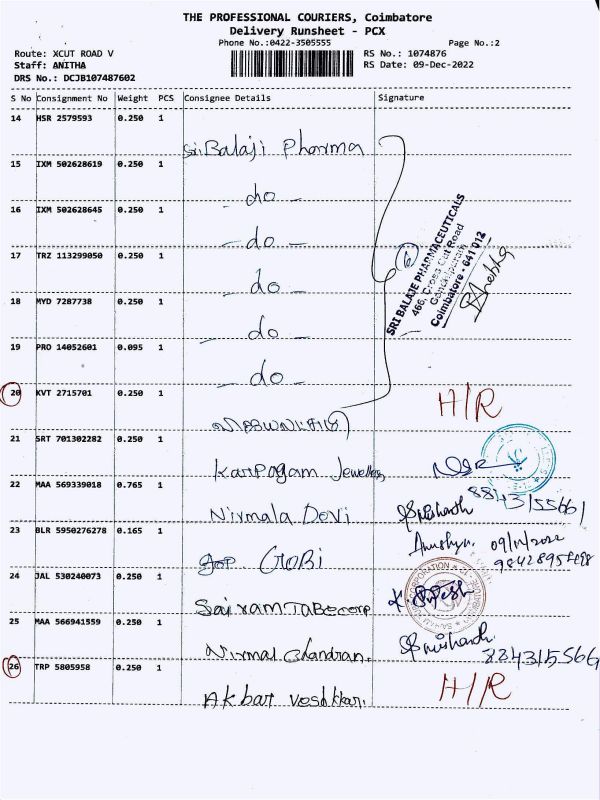 THE PROFESSIONAL COURIERS, Coimbatore
Delivery Runsheet - PCX
Phone No.:0422-3505555
Page No.:2
Route: XCUT ROAD V
RS No.: 1074876
Staff: ANITHA
RS Date: 09-Dec-2022
DRS No.: DCJB107487602
S No Consignment No Weight PCS Consignee Details Signature
14 HSR 2579593 0.250 1
Sri Balaji Pharma
15 IXM 502628619 0.250 1
- do -
16 IXM 502628645 0.250 1
- do -
17 TRZ 113299050 0.250 1
- do -
18 MYD 7287738 0.250 1
- do -
19 PRO 14052601 0.095 1
- do -
6
SRI BALAJE PHARMACEUTICALS
466, Cross Cut Road
Gandhipuram
Coimbatore - 641 012
20 KVT 2715701 0.250 1
H/R
21 SRT 701302282 0.250 1
Karpagam Jewellers
22 MAA 569339018 0.765 1
Nirmala Devi
8843155661
23 BLR 5950276278 0.165 1
GOBI
09/12/2022
24 JAL 530240073 0.250 1
Sairam
25 MAA 566941559 0.250 1
Nirmal Chandran.
884315566
26 TRP 5805958 0.250 1
Akbar
H/R